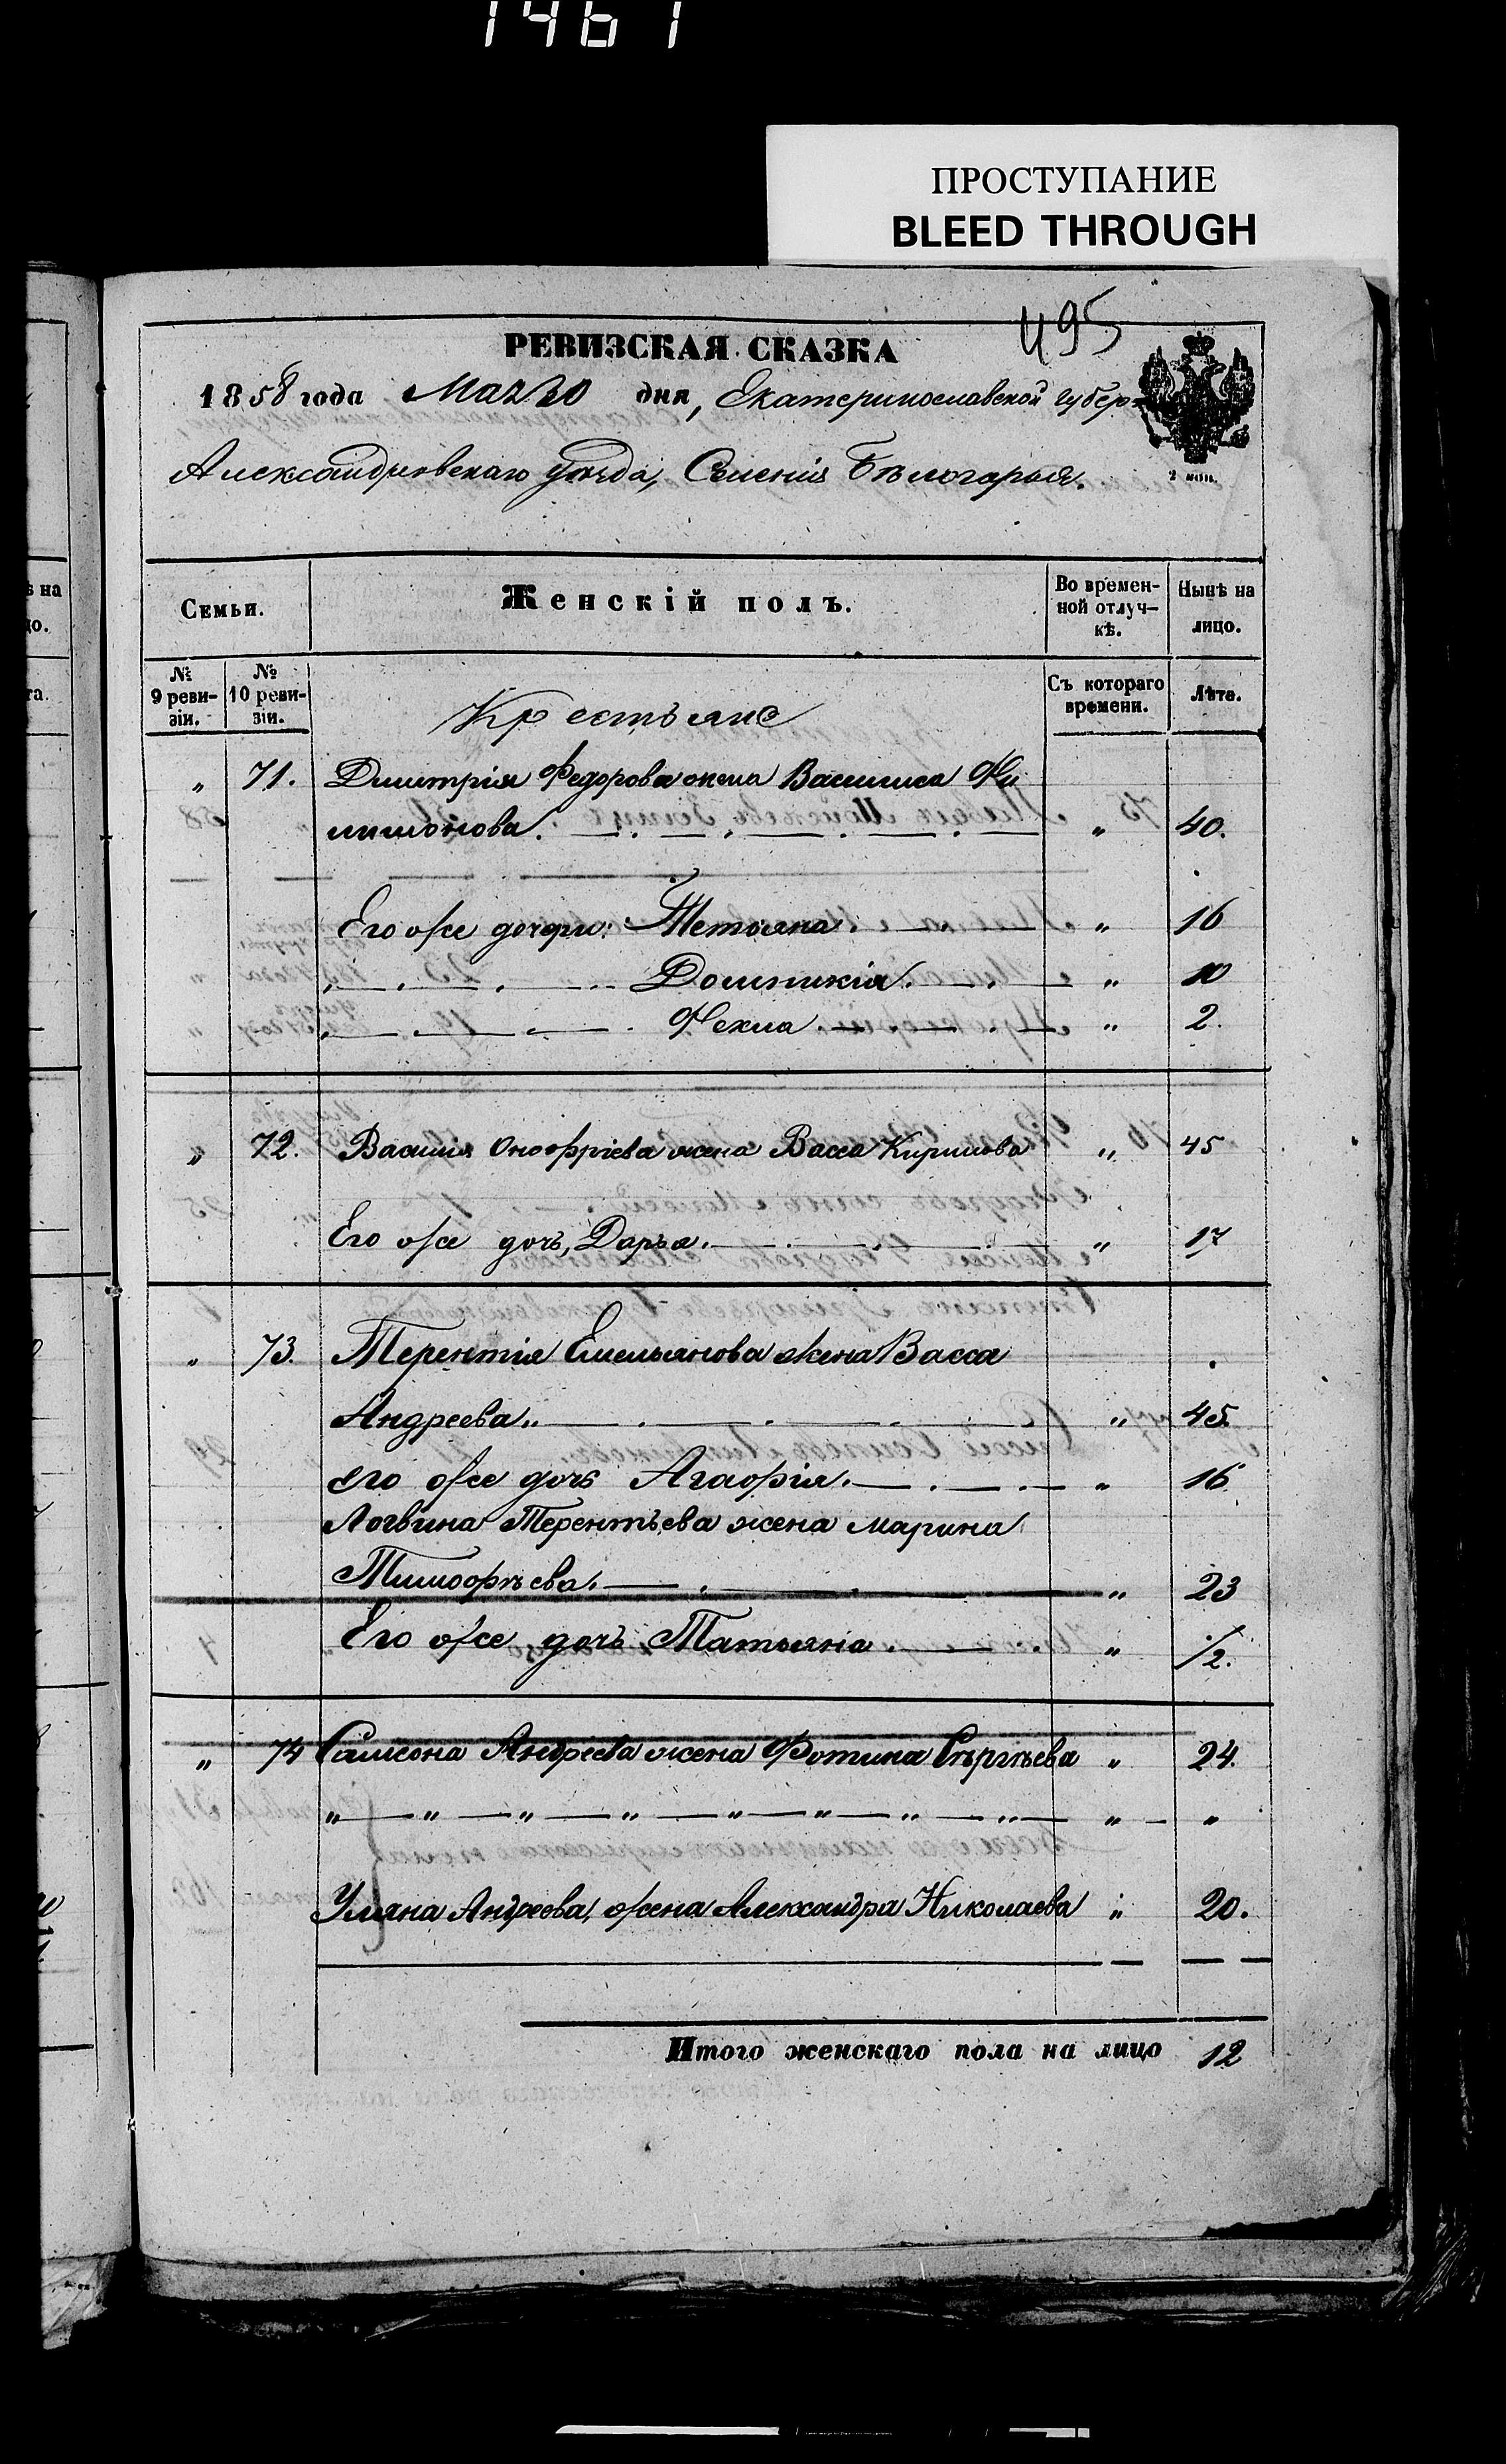 1461
ПРОСТУПАНИЕ
BLEED THROUGH
495
РЕВИЗСКАЯ СКАЗКА
1858 года Мая 20 дня, Екатеринославской губер-
Александровскаго уѣзда, Селенія Бѣлогорья.
2 коп.
Семьи. Женскій полъ. Во времен-ной отлуч-кѣ. Нынѣ на лицо.
№ 9 реви-зіи. № 10 реви-зіи. Съ котораго времени. Лѣта.
Крестьяне
„ 71. Димитрія Федорова жена Василиса Фи
лимонова. „ 40.
Его же дочери: Тетьяна „ 16
Домникія. „ 10
Фекла. „ 2.
„ 72. Василія Онофріева жена Васса Кирилова „ 45
Его же дочь, Дарья. „ 17
„ 73. Терентія Емельянова жена Васса
Андреева. „ 45.
его же дочь Агафія. „ 16
Логвина Терентьева жена Марина
Тимофѣева. „ 23
Его же дочь Татьяна. „ 1/2.
„ 74 Самсона Андреева жена Фотина Сергѣева „ 24.
„ — „ — „ — „ — „ — „ — „ — „ — „ — „
Уляна Андреева, жена Александра Николаева „ 20.
Итого женскаго пола на лицо 12